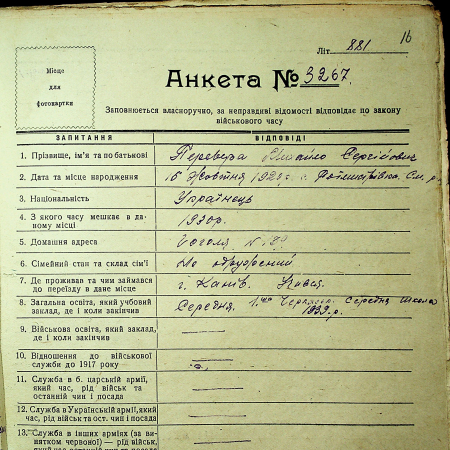 16
Літ. 881
Місце
для
фотокартки
Анкета № 3267.
Заповнюється власноручно, за неправдиві відомості відповідає по закону
військового часу
ЗАПИТАННЯ ВІДПОВІДІ
1. Прізвище, ім'я та по батькові Сергійович
2. Дата та місце народження 15 Жовтня
3. Національність Українець
4. З якого часу мешкає в да-
ному місці 1930 р.
5. Домашня адреса Гоголя №
6. Сімейний стан та склад сім'ї Не одружений
7. Де проживав та чим займався
до переїзду в дане місце г. Канів.
8. Загальна освіта, який учбовий
заклад, де і коли закінчив Середня. Середня школа
1939 р.
9. Військова освіта, який заклад,
де і коли закінчив —
10. Відношення до військової
служби до 1917 року —
11. Служба в б. царській армії,
який час, рід військ та
останній чин і посада —
12. Служба в Українській армії, який
час, рід військ та ост. чин і посада —
13. Служба в інших арміях (за ви-
нятком червоної) — рід військ,